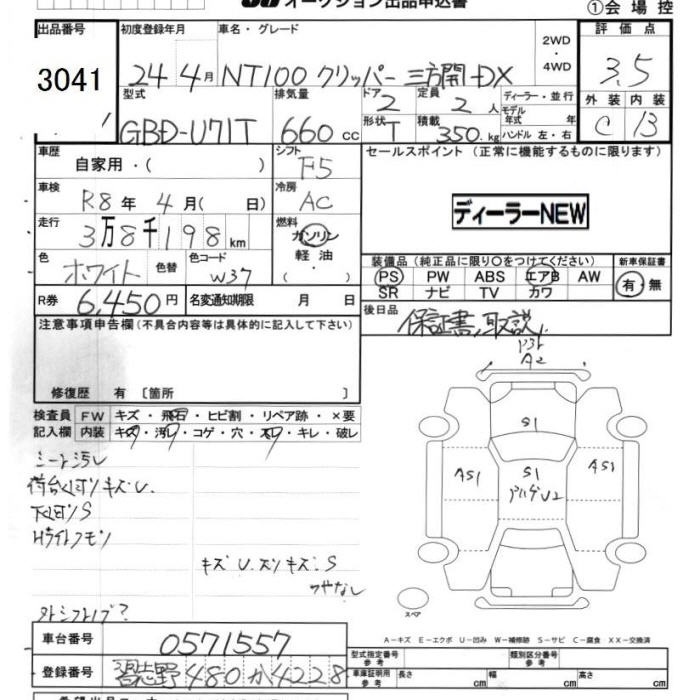 オークション出品申込書
①会場控
出品番号 初度登録年月 車名・グレード 評価点
3041 24年4月 NT100 クリッパー 三方開 DX 2WD・4WD 3.5
型式 排気量 ドア 2 定員 2人 ディーラー・並行 外装 内装
GBD-U71T 660cc 形状 T 積載 350kg モデル年式 年 C B
ハンドル 左・右
車歴 自家用・( ) シフト F5 セールスポイント (正常に機能するものに限ります)
車検 R8年 4月( 日) 冷房 AC
ディーラーNEW
走行 3万8千198km 燃料 ガソリン・軽油・( )
色 ホワイト 色替 色コード W37
装備品 (純正品に限り○をつけてください) 新車保証書
PS PW ABS エアB AW 有・無
SR ナビ TV カワ
R券 6,450円 名変通知期限 月 日
後日品 保証書、取説
注意事項申告欄 (不具合内容等は具体的に記入して下さい)
修復歴 有 〔箇所 〕
検査員 FW キズ・飛石・ヒビ割・リペア跡・×要
記入欄 内装 キズ・汚レ・コゲ・穴・スレ・キレ・破レ
A2
S1
AS1 S1 AS1
U2
シート汚レ
キズU
下廻リS
キズU スリキズ S
ツヤなし
スペア
A-キズ E-エクボ U-凹み W-補修跡 S-サビ C-腐食 XX-交換済
車台番号 0571557
型式指定番号 参考 類別区分番号 参考
登録番号 習志野 480 か 4228
車庫証明用 参考 長さ cm 幅 cm 高さ cm